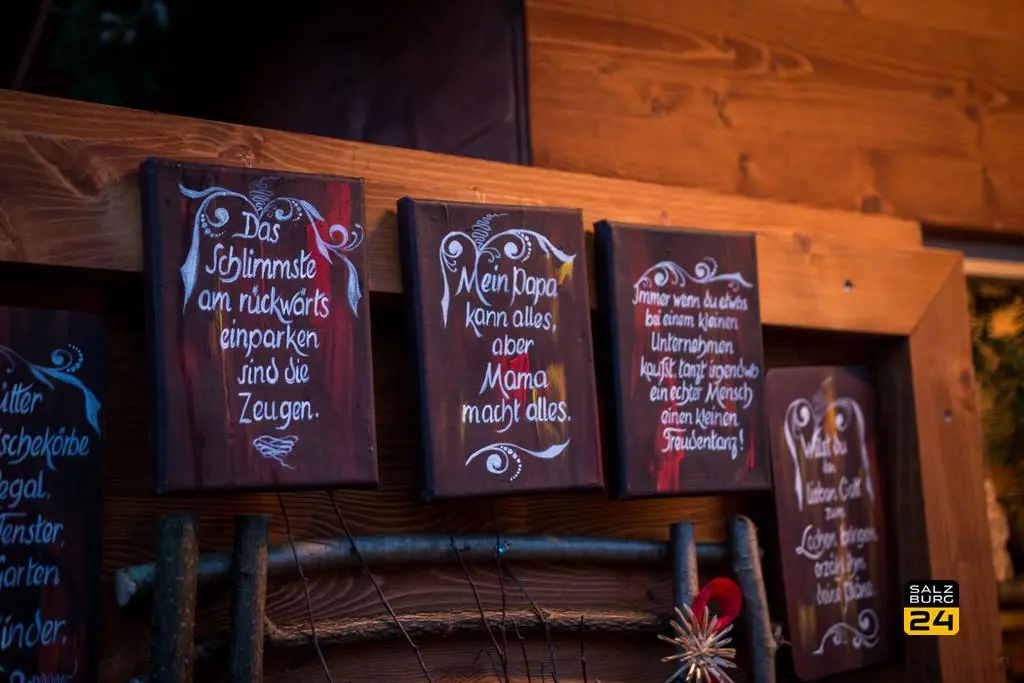 ütter
schekörbe
egal.
Fenster,
Garten
inder.
Das
Schlimmste
am rückwärts
einparken
sind die
Zeugen.
Mein Papa
kann alles,
aber
Mama
macht alles.
Immer wenn du etwas
bei einem kleinen
Unternehmen
kaufst, tanzt irgendwo
ein echter Mensch
einen kleinen
Freudentanz!
Willst du
den
lieben Gott
zum
Lachen bringen,
erzähl ihm
deine Pläne.
SALZ
BURG
24